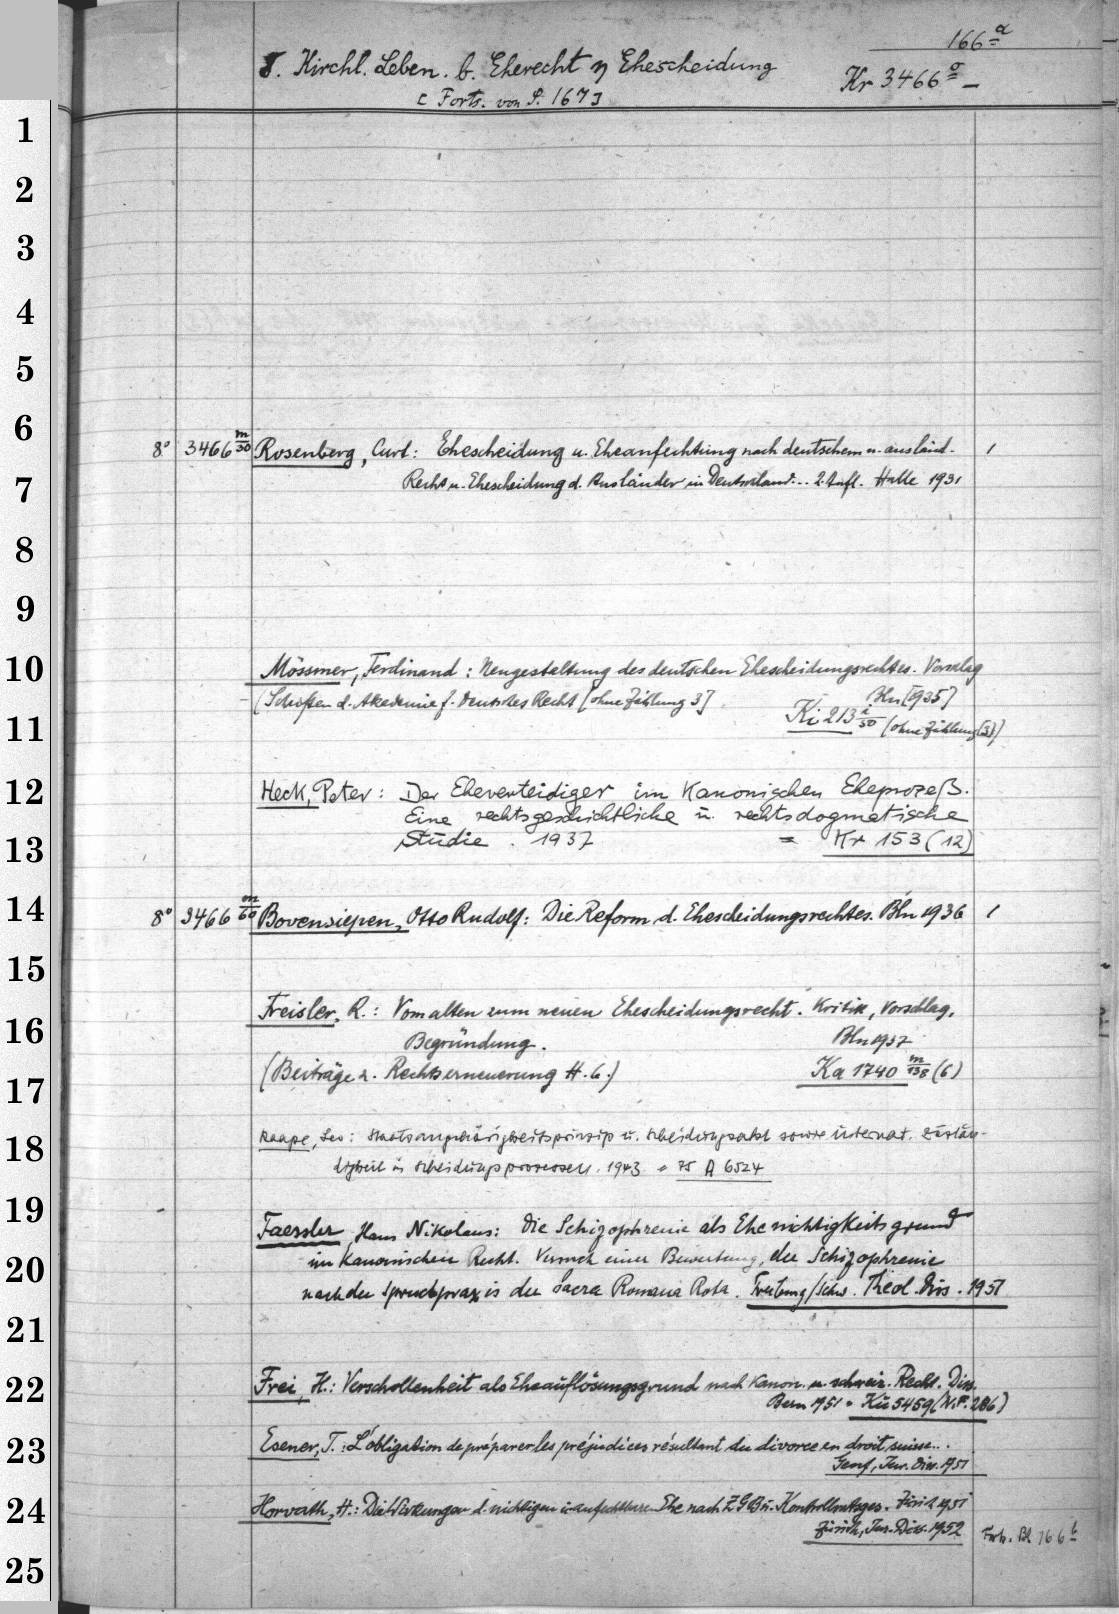 166 a
5. Kirchl. Leben. b. Eherecht u Ehescheidung
Kr 3466 o –
[Forts. von S. 167]
1
2
3
4
5
6
8° 3466 m/30 Rosenberg, Curt: Ehescheidung u. Eheanfechtung nach deutschem u. ausländ. 1
7
Recht u. Ehescheidung d. Ausländer in Deutschland... 2. Aufl. Halle 1931
8
9
10
Mössmer, Ferdinand: Neugestaltung des deutschen Ehescheidungsrechtes. Vorschlag
(Schriften d. Akademie f. Deutsches Recht [ohne Zählung 3] Bln [1935]
11
Ki 213 i/50 (ohne Zählung [3])
12
Heck, Peter: Der Eheverteidiger im Kanonischen Eheprozeß.
Eine rechtsgeschichtliche u. rechtsdogmatische
13
Studie. 1937 = Kr 153 (12)
14
8° 3466 m/60 Bovensiepen, Otto Rudolf: Die Reform d. Ehescheidungsrechtes. Bln 1936 1
15
Freisler, R.: Vom alten zum neuen Ehescheidungsrecht. Kritik, Vorschlag,
16
Begründung. Bln 1937
17
(Beiträge z. Rechtserneuerung H. 6.) Ka 1740 m/138 (6)
18
Raape, Leo: Staatsangehörigkeitsprinzip u. Scheidungsakt sowie internat. Zustän-
digkeit in Scheidungsprozessen. 1943 = 75 A 6524
19
Faessler, Hans Nikolaus: Die Schizophrenie als Ehenichtigkeitsgrund
20
im kanonischen Recht. Versuch einer Bewertung der Schizophrenie
nach der Spruchpraxis der Sacra Romana Rota. Freiburg/Schw. Theol. Diss. 1951
21
22
Frei, H.: Verschollenheit als Eheauflösungsgrund nach kanon. u. schweiz. Recht. Diss.
Bern 1951 = Kü 5459 (N.F. 286)
23
Esener, T.: L'obligation de préparer les préjudices résultant du divorce en droit suisse...
Genf, Jur. Diss. 1951
24
Horvath, H.: Die Wirkungen d. nichtigen u. anfechtbaren Ehe nach ZGB u. Kontrollratsges. Zürich 1951
Zürich, Jur. Diss. 1952
Forts. Bl 166 b
25